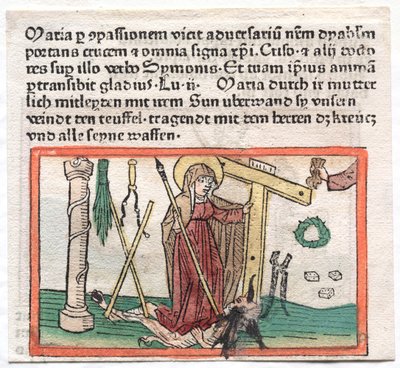 Maria ꝑ ꝯpassionem vicit aduersariũ nr̃m dyabl̃m
portans crucem ⁊ omnia signa xp̃i. Criso. ⁊ alij docto
res sup illo verbo Symonis. Et tuam ip̃ius animã
ꝑtransibit gladius. Lu. ii. Maria durch ir mutter
lich mitleyden mit irem Sun uberwand sy unsern
veindt den teuffel. tragendt mit dem herren dz kreucz
vnd alle seyne waffen.